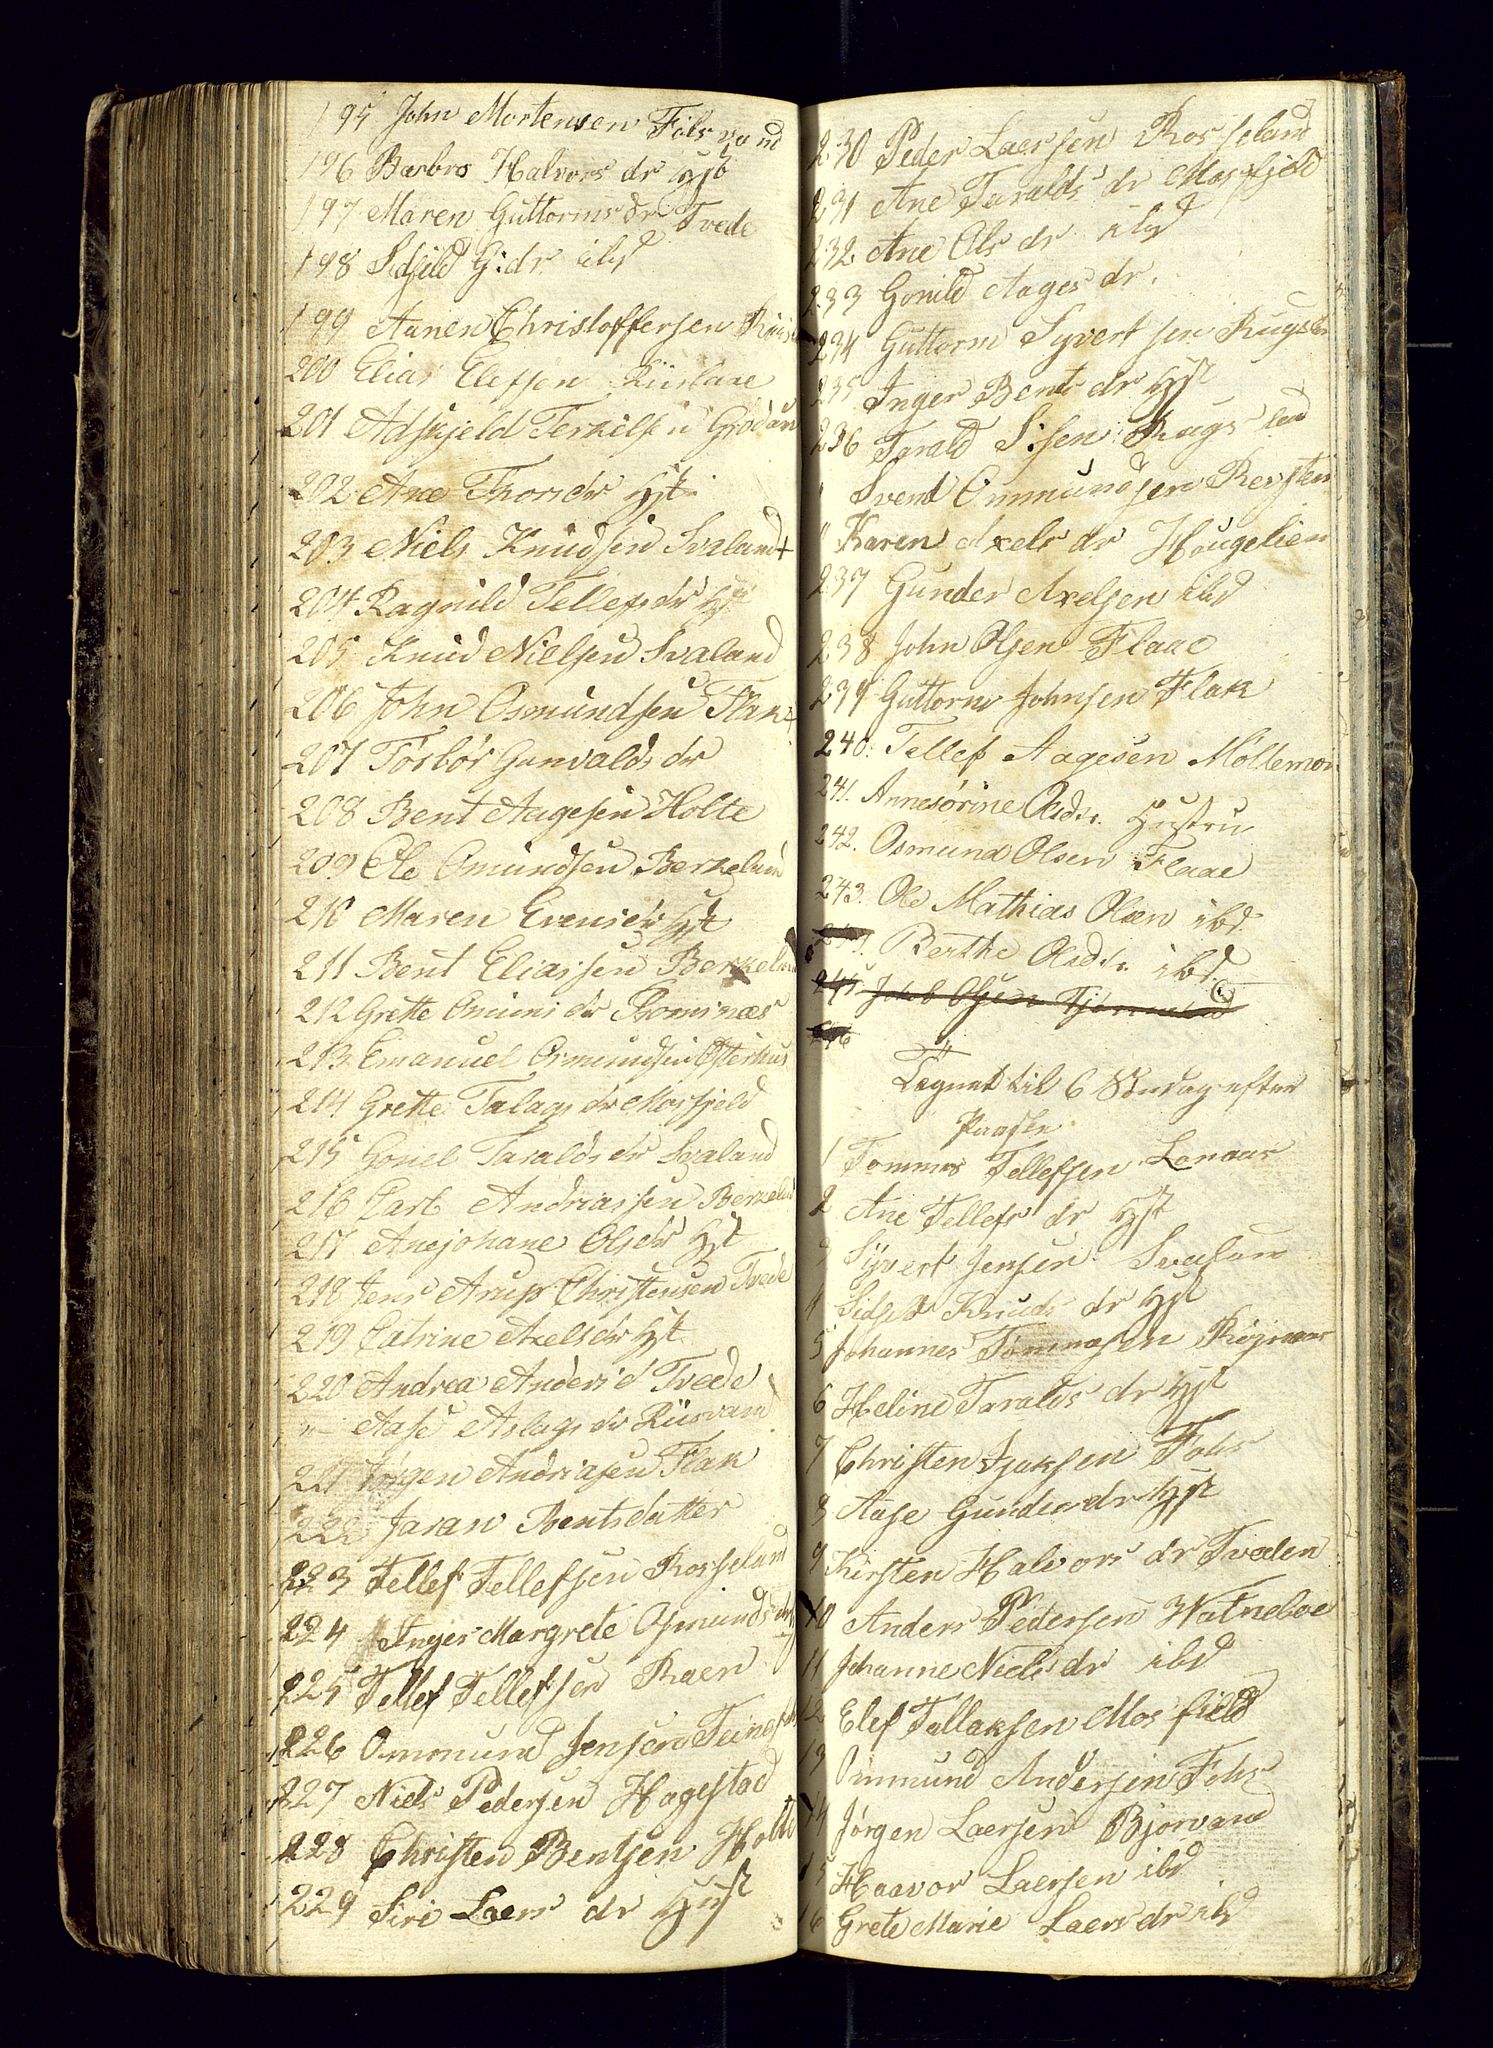 195 John Mortensen Fols vand
196 Barbro Halvors dr Hst
197 Maren Guttorms dr Tvede
198 G:dr ibd
199 Aanen Christoffersen
200 Elias Elefsen
201 Adskjeld Terkilsen
202 Ane Thors dr Hst
203 Niels Knudsen Svaland +
204 Ragnild Tellefs dr Hst
205 Knud Nielsen Svaland
206 John Osmundsen Flak +
207 Torbor Gunvalds dr
208 Bent Aagesen Holte
209 Ole Omundsen Berkelund
210 Maren Evens dr Hst
211 Bent Eliassen Berkelund
212 Grette dr
213 Emanuel Osmundsen Osterhus
214 Grette Talags dr Mosfjeld
215 Gonel Taralds dr Svaland
216 Carl Andriassen Berkelund
217 Anejohane Ols dr Hst
218 Jens Arup Christensen Tvede
219 Catrine Axels dr Hst
220 Andrea Anders d Tvede
" Aase Aslags dr Riisvand
221 Jørgen Andriasen Flak
222 Jaran Bentsdatter
223 Tellef Tellefsen Rosseland
224 Inger Margrete Osmunds dr
225 Tellef Tellefsen Raen
226 Ommund Jensen
227 Niels Pedersen Hagestad
228 Christen Bentsen Holte
229 Siri Laers dr Hust
230 Peder Laersen Rosseland
231 Ane Taralds dr Mosfjeld
232 Ane Ols dr ibd
233 Gonild Aages dr.
234 Guttorm Syvertsen
235 Inger Bents dr Hst
236 Tarald S:sen Rugsland
" Svend Ommundsen
" Karen Axels dr Hougelien
237 Gunder Axelsen ibd
238 John Olsen Flaae
239 Guttorm Johnsen Flak
240. Tellef Aagesen
241. Annesørine Olsdr. Hustru
242. Osmund Olsen Flaae
243. Ole Mathias Olsen ibd.
Berthe Olsdr. ibd.
245 Jakob Olsen
246
Tegnet til 6 Søndag efter
Paaske
1 Tommes Tellefsen
2 Ane Tellefs dr Hst
3 Syvert Jensen
4 Knuds dr Hst
5 Johannes Tommasen
6 Heline Taralds dr Hst
7 Christen Isaksen Fohs
8 Aase Gunders dr Hst
9 Kirsten Halvors dr Tveden
10 Anders Pedersen Watneboe
11 Johanne Niels dr ibd
12 Elef Tallaksen Mosfield
13 Ommund Andersen Fohs
14 Jørgen Laersen Bjorvand
15 Haavor Laersen ibd
16 Grete Marie Laers dr ibd